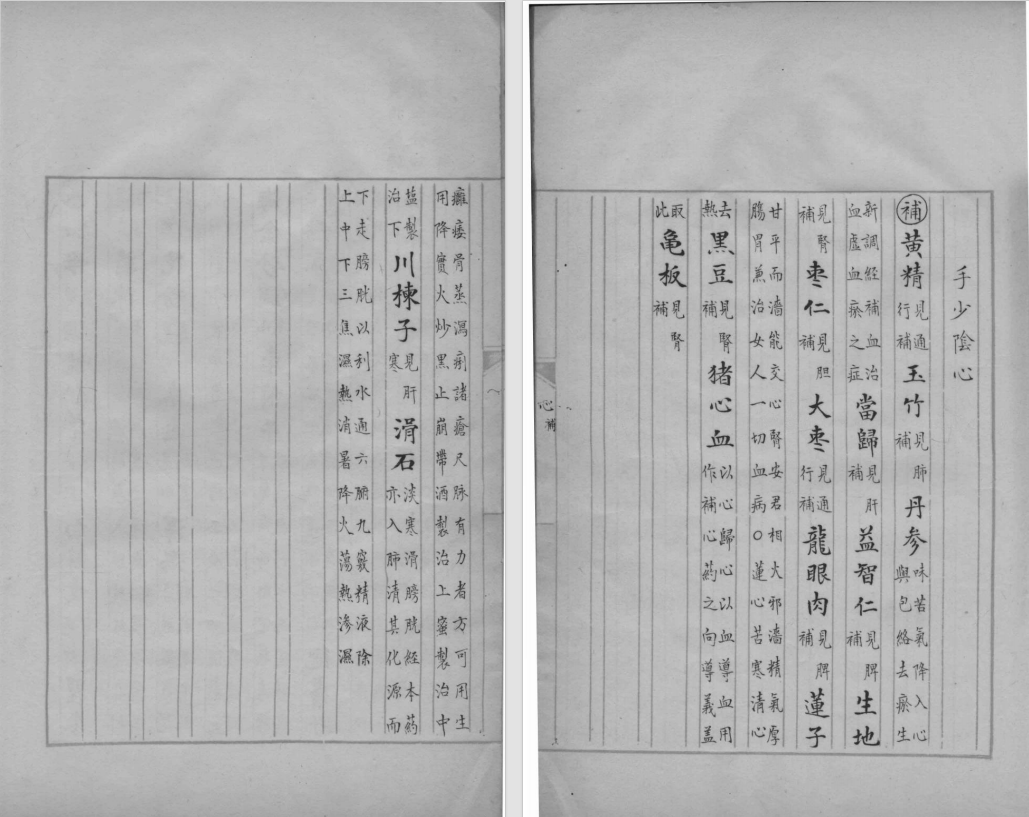 手少陰心
補黃精見通行補玉竹見肺補丹參味苦氣降入心與包絡去瘀生
新調經補血治血虛血瘀之症當歸見肝補益智仁見脾補生地
見腎補棗仁見胆補大棗見通行補龍眼肉見脾補蓮子
甘平而濇能交心腎安君相火邪濇精氣厚腸胃兼治女人一切血病○蓮心苦寒清心
去熱黑豆見腎補猪心血以心歸心以血導血用作補心葯之向導義蓋
取此亀板見腎補
心補
癰痿骨蒸瀉痢諸瘡尺脉有力者方可用生用降實火炒黑止崩帶酒製治上蜜製治中
塩製治下川楝子見肝寒滑石淡寒滑膀胱經本葯亦入肺清其化源而
下走膀胱以利水通六腑九竅精液除上中下三焦濕熱消暑降火蕩熱滲濕